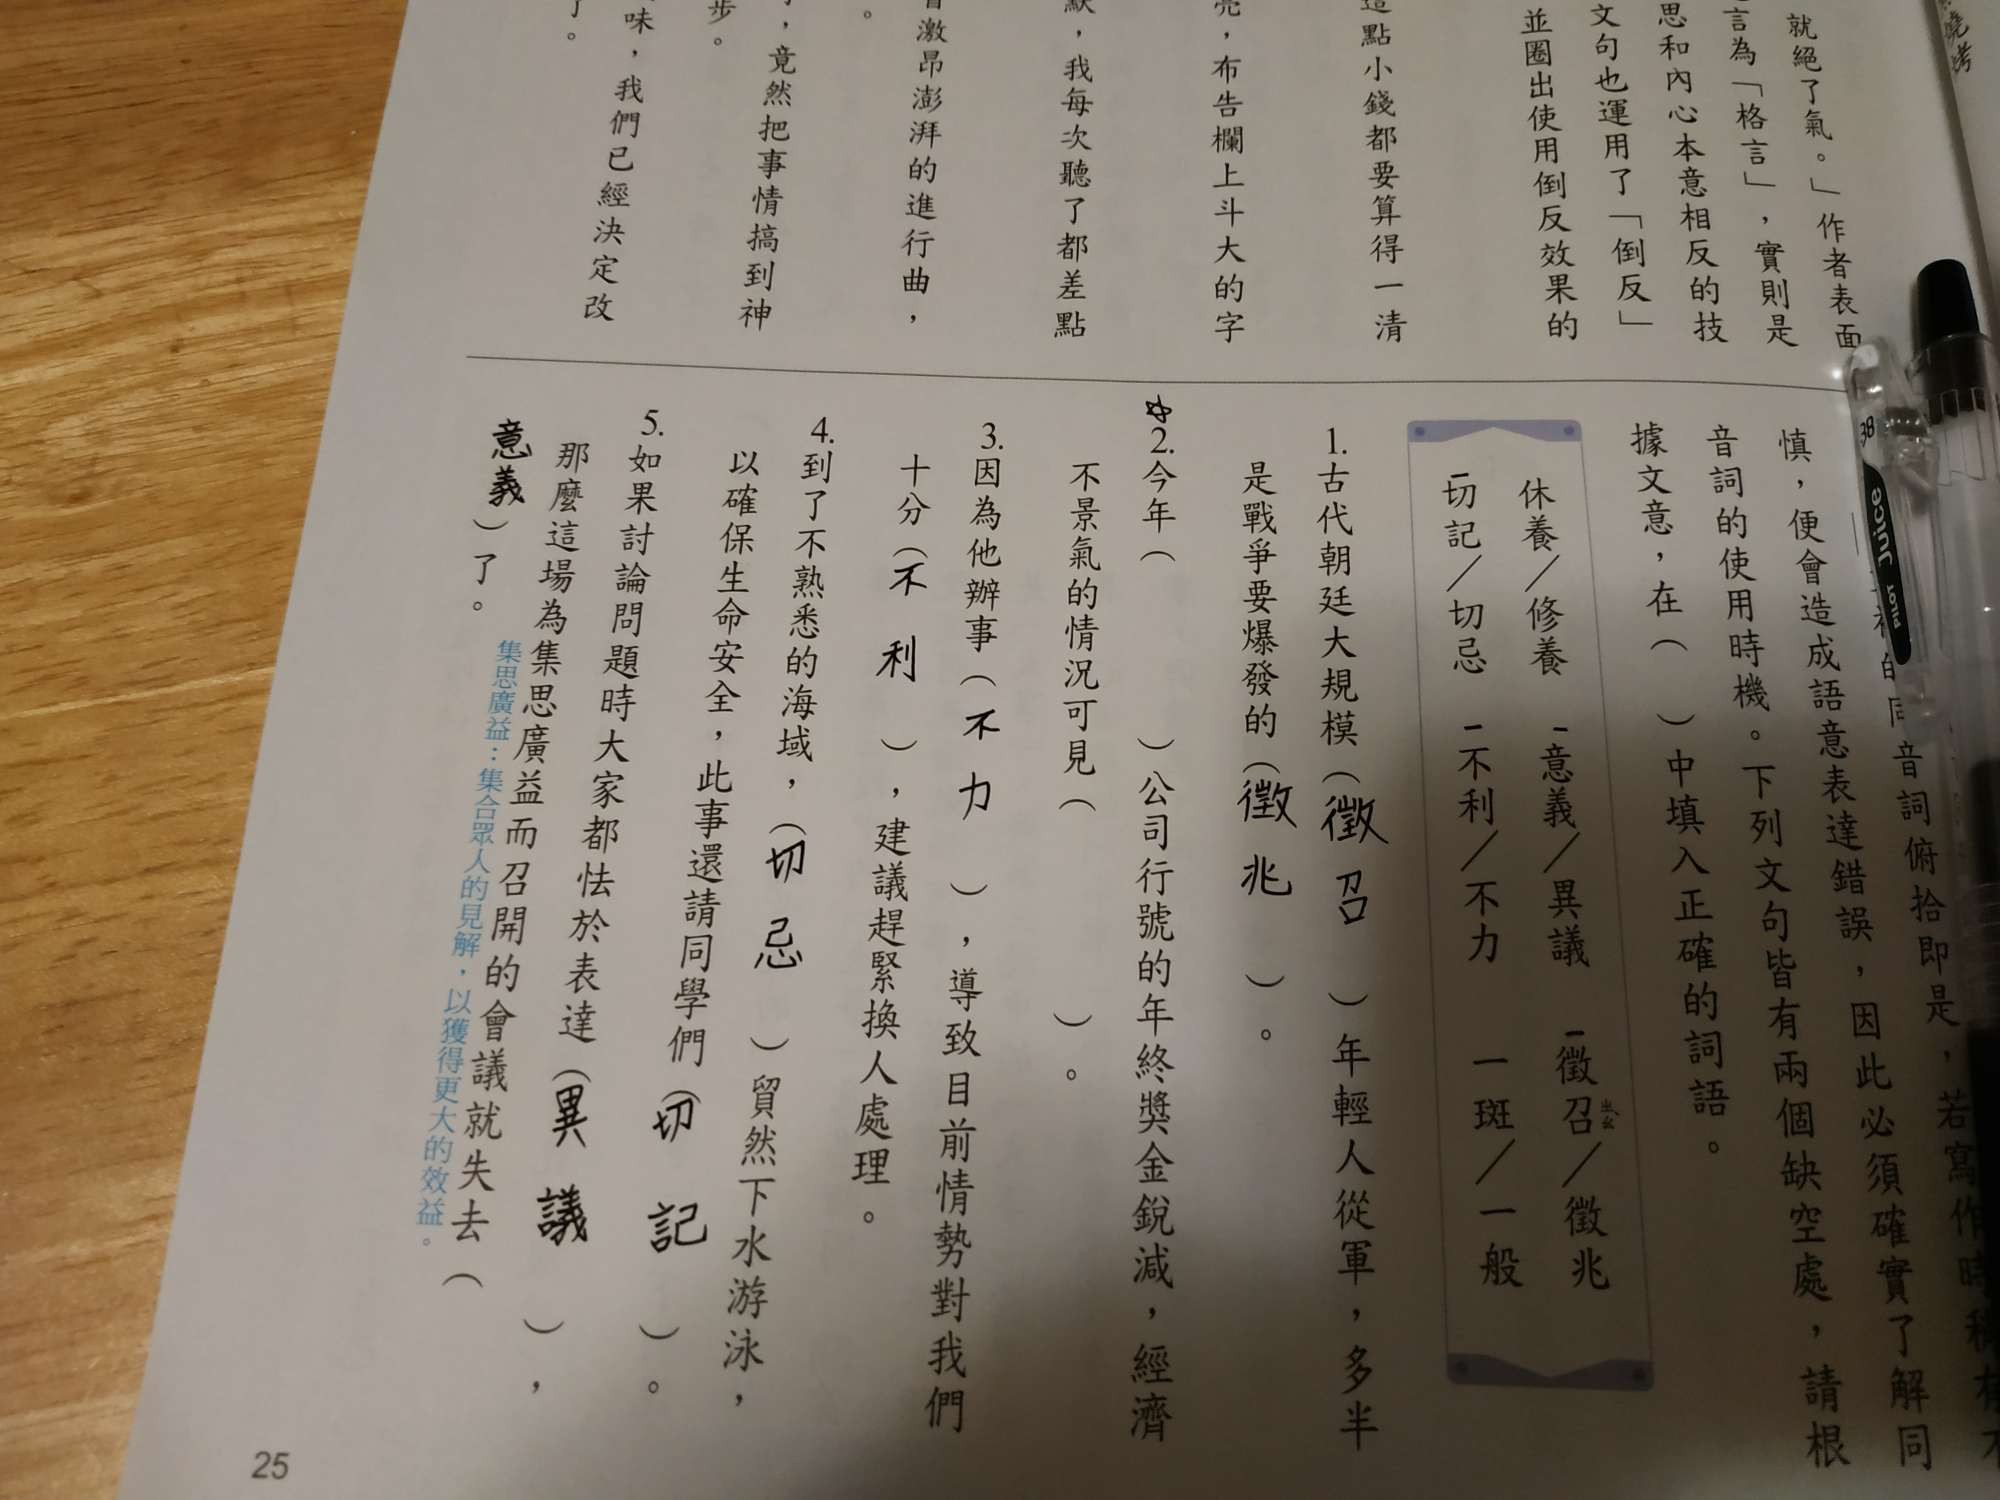 就絕了氣。」作者表面
言為「格言」，實則是
思和內心本意相反的技
文句也運用了「倒反」
並圈出使用倒反效果的
這點小錢都要算得一清
亮，布告欄上斗大的字
默，我每次聽了都差點
激昂澎湃的進行曲，
。
，竟然把事情搞到神
步。
味，我們已經決定改
了。
音詞俯拾即是，若寫作時
慎，便會造成語意表達錯誤，因此必須確實了解同
音詞的使用時機。下列文句皆有兩個缺空處，請根
據文意，在（　）中填入正確的詞語。
休養／修養　意義／異議　徵召／徵兆
ㄓㄠ
切記／切忌　不利／不力　一斑／一般
1.古代朝廷大規模（徵召）年輕人從軍，多半
是戰爭要爆發的（徵兆）。
☆
2.今年（　）公司行號的年終獎金銳減，經濟
不景氣的情況可見（　）。
3.因為他辦事（不力），導致目前情勢對我們
十分（不利），建議趕緊換人處理。
4.到了不熟悉的海域，（切忌）貿然下水游泳，
以確保生命安全，此事還請同學們（切記）。
5.如果討論問題時大家都怯於表達（異議），
那麼這場為集思廣益而召開的會議就失去（
意義）了。
集思廣益：集合眾人的見解，以獲得更大的效益。
25
38
Juice
PILOT